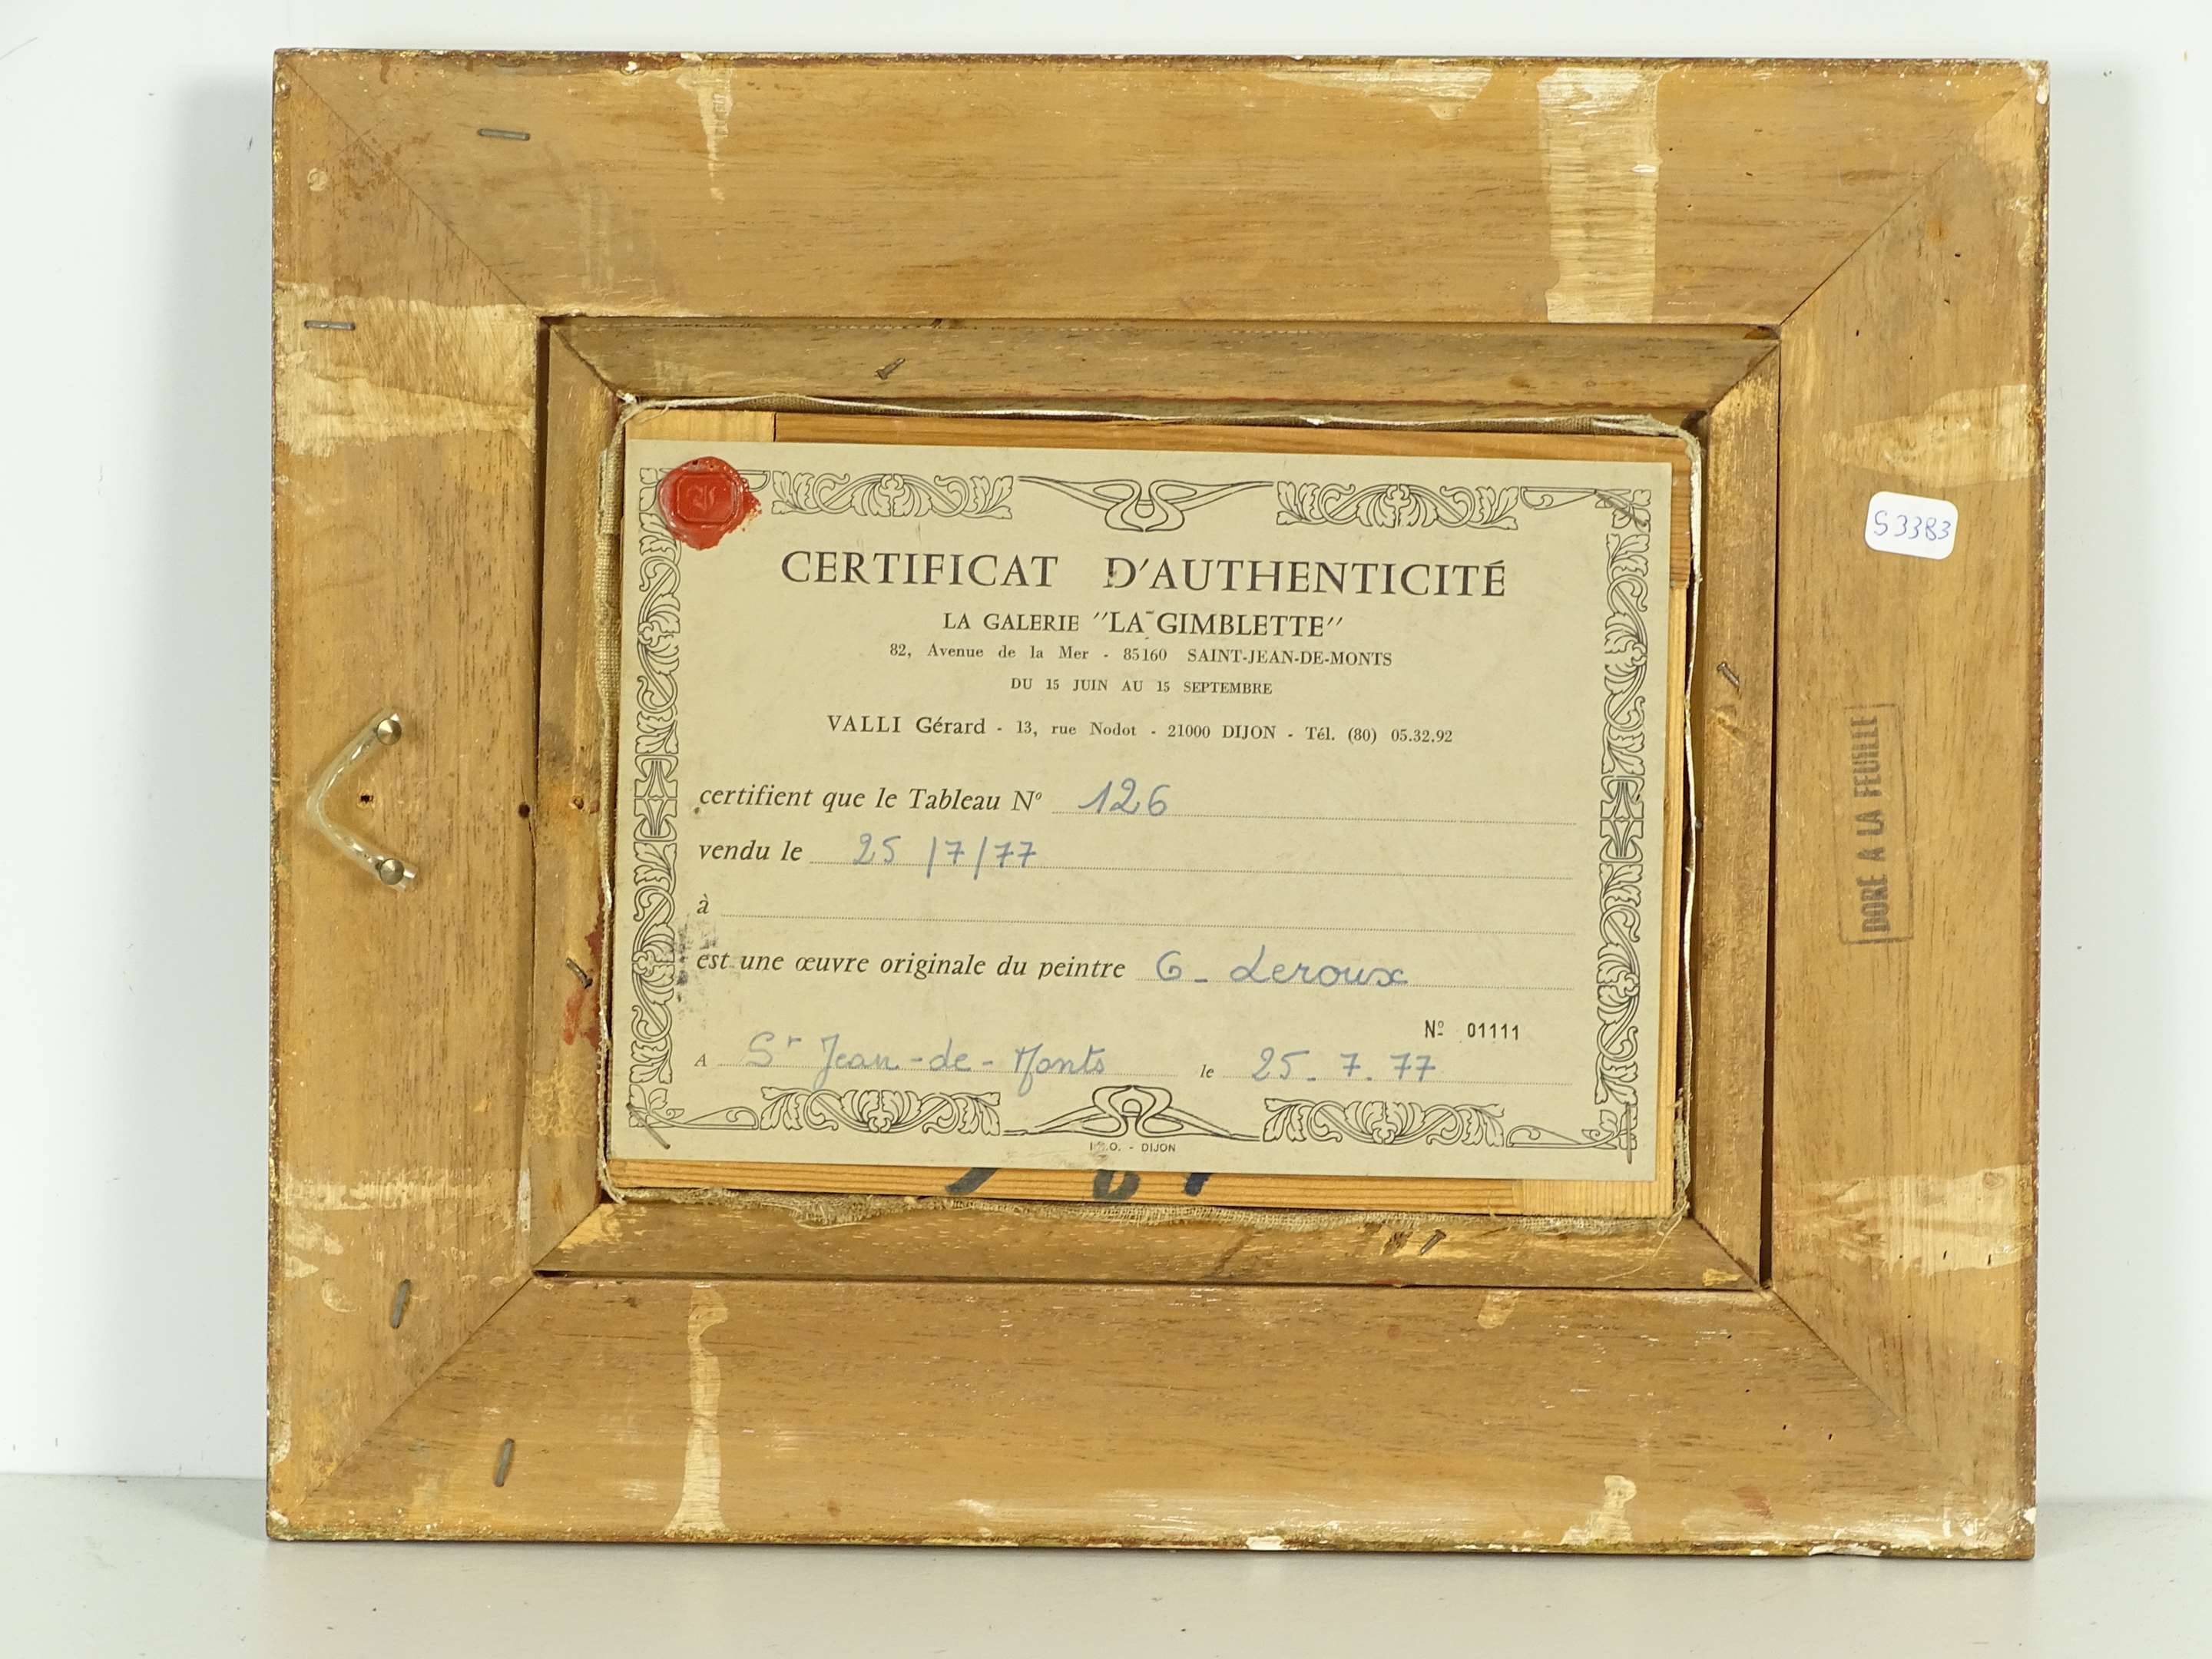 CERTIFICAT D'AUTHENTICITÉ
LA GALERIE "LA GIMBLETTE"
82, Avenue de la Mer - 85160 SAINT-JEAN-DE-MONTS
DU 15 JUIN AU 15 SEPTEMBRE
VALLI Gérard - 13, rue Nodot - 21000 DIJON - Tél. (80) 05.32.92
certifient que le Tableau Nº 126
vendu le 25/7/77
à
est une œuvre originale du peintre G - Leroux
Nº 01111
A St Jean-de-Monts le 25.7.77
- DIJON
S3383
DORE A LA FEUILLE